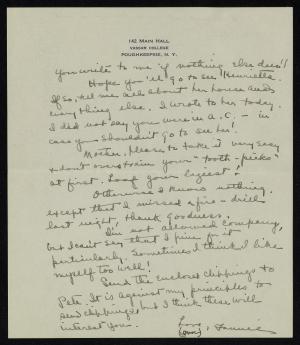 142 MAIN HALL
VASSAR COLLEGE
POUGHKEEPSIE, N. Y.
you write to me if nothing else does!
Hope you'll go to see Henrietta.
If so, tell me all about her house and
everything else. I wrote to her today.
I did not say you were in A.C. - in
case you shouldn't go to see her!
Mother, please to take it very easy
& don't overstrain your "tooth-picks"
at first. Loaf your laziest!
Otherwise I know nothing
except that I missed a fire-drill
last night, thank goodness.
I'm not allowed company,
but I can't say that I pine for it
particularly. Sometimes I think I like
myself too well!
Send the enclosed clippings to
Pete. It is against my principles to
send clippings, but I think these will
interest you.
Love,
Fannie